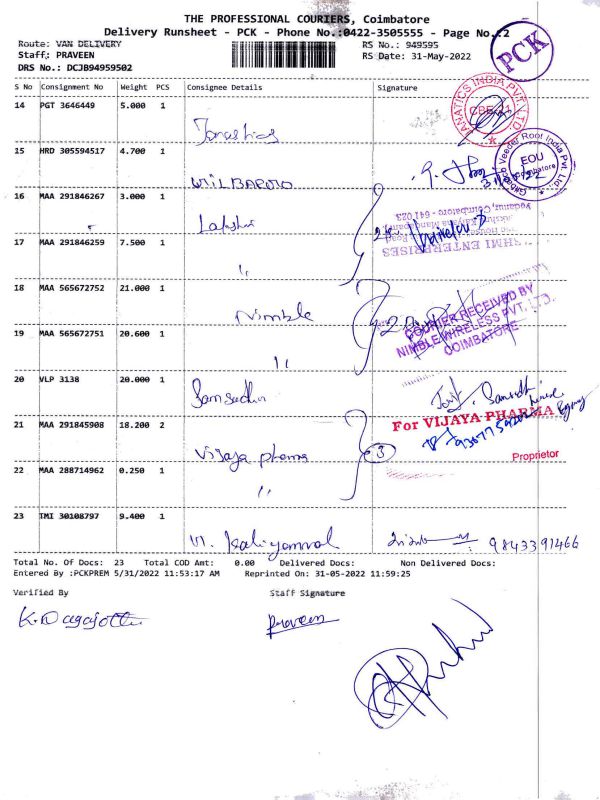 THE PROFESSIONAL COURIERS, Coimbatore
Delivery Runsheet - PCK - Phone No.:0422-3505555 - Page No.:2
Route: VAN DELIVERY RS No.: 949595
Staff: PRAVEEN RS Date: 31-May-2022
DRS No.: DCJB94959502
PCK
S No Consignment No Weight PCS Consignee Details Signature
14 PGT 3646449 5.000 1
CBE-11
15 HRD 305594517 4.700 1
Gilbarco Veeder Root India Pvt. Ltd.
EOU
Coimbatore
16 MAA 291846267 3.000 1
Lakshmi
17 MAA 291846259 7.500 1
"
18 MAA 565672752 21.000 1
Nimble
COURIER RECEIVED BY
NIMBLE WIRELESS PVT. LTD.
COIMBATORE
19 MAA 565672751 20.600 1
"
20 VLP 3138 20.000 1
21 MAA 291845908 18.200 2
Vijaya pharma
3
For VIJAYA PHARMA
Proprietor
22 MAA 288714962 0.250 1
"
23 TMI 30108797 9.400 1
9843391466
Total No. Of Docs: 23 Total COD Amt: 0.00 Delivered Docs: Non Delivered Docs:
Entered By :PCKPREM 5/31/2022 11:53:17 AM Reprinted On: 31-05-2022 11:59:25
Verified By Staff Signature
Praveen